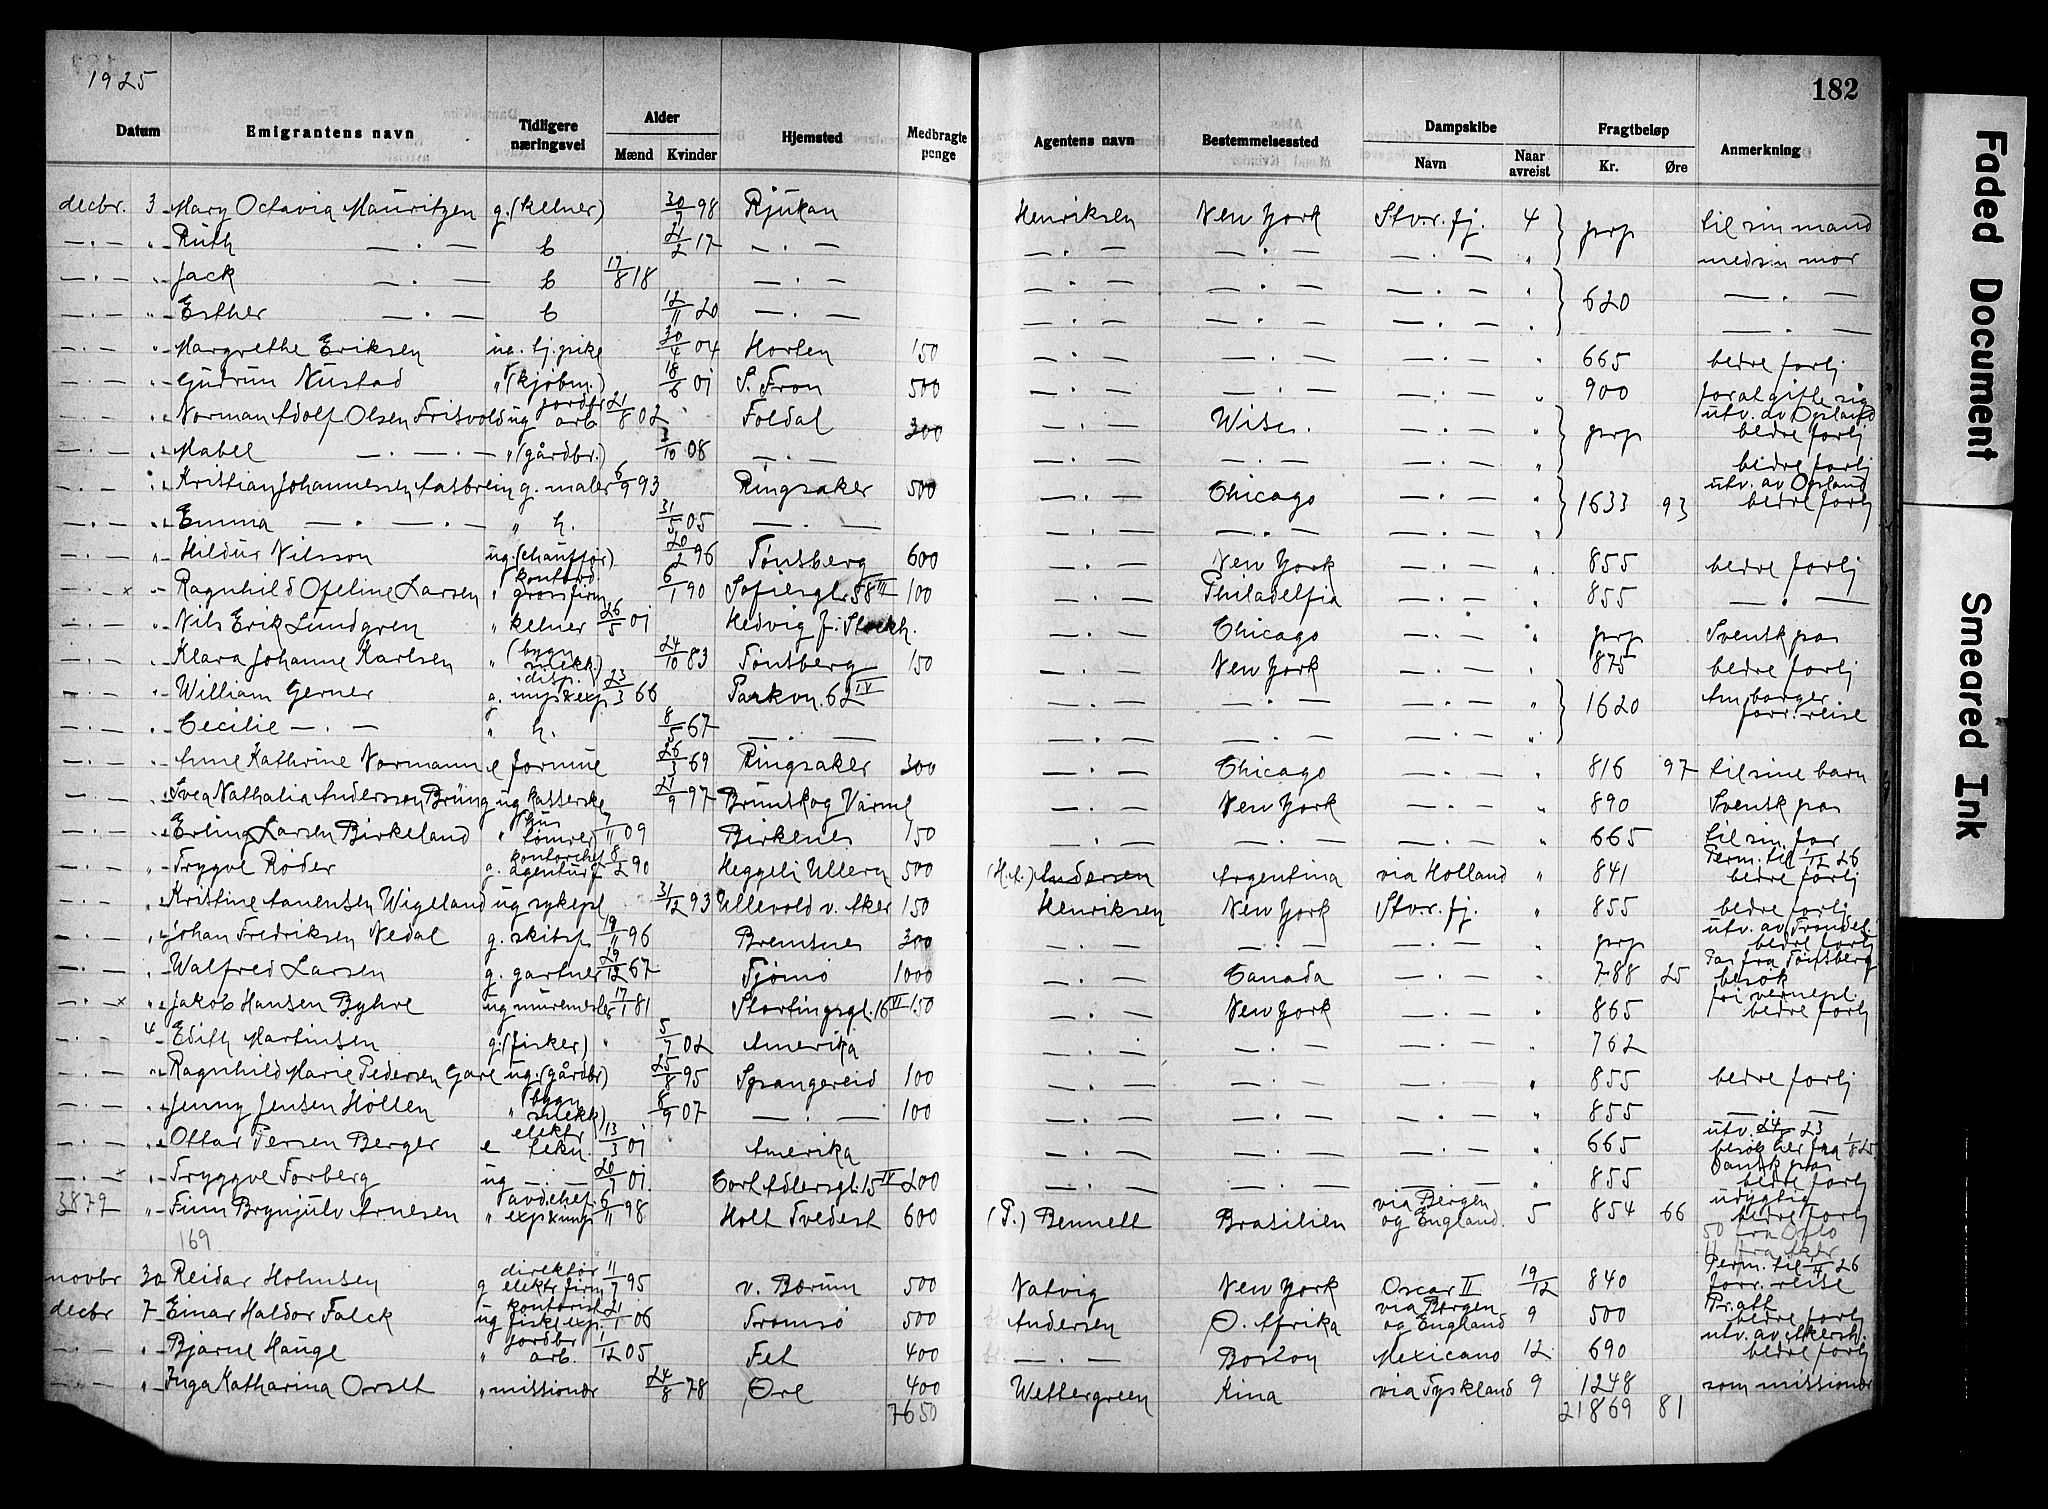 1925
182
Datum Emigrantens navn Tidligere næringsvei Alder Mænd Kvinder Hjemsted Medbragte penge Agentens navn Bestemmelsessted Dampskibe Navn Naar avreist Fragtbeløp Kr. Øre Anmerkning
decbr. 3 Mary Octavia Mauritzen g. (kelner) 30/7 98 Rjukan Henriksen New York Stv.r.fj. 4 prp til sin mand
— . — " Ruth — . — b 21/2 17 — . — — . — — . — — . — " med sin mor
— . — " Jack — . — b 17/8 18 — . — — . — — . — — . — " 620 — . —
— . — " Esther — . — b 12/11 20 — . — — . — — . — — . — " — . —
— . — " Margrethe Eriksen ug. tj.pike 30/4 04 Horten 150 — . — — . — — . — " 665 bedre fortj
— . — " Gudrun Nustad " (kjøbm.) 18/6 01 S. Fron 500 — . — — . — — . — " 900 for at gifte sig
— . — " Norman Adolf Olsen Fritsvold ug jordbr arb 21/8 02 Foldal 300 — . — Wisc. — . — " prp utv. av Opland bedre fortj
— . — " Mabel — . — . — " (gårdbr.) 3/10 08 — . — — . — — . — — . — " bedre fortj
— . — " Kristian Johannessen Aasbrein g. maler 6/9 93 Ringsaker 500 — . — Chicago — . — " 1633 93 utv. av Opland bedre fortj
— . — " Emma — . — . — " h. 31/5 05 — . — — . — — . — — . — "
— . — " Hildur Nilsson ug. (chauffør) 20/2 96 Tønsberg 600 — . — New York — . — " 855 bedre fortj
— . — x " Ragnhild Ofeline Larsen " kontord. grossfirm 6/1 90 Sofiesgt. 58 III 100 — . — Philadelfia — . — " 855 — . —
— . — " Nils Erik Lundgren " kelner 26/5 01 Hedvig f. Stockh. — . — Chicago — . — " prp Svensk pas
— . — " Klara Johanne Karlsen " (bygn snekk.) 24/10 83 Tønsberg 150 — . — New York — . — " 875 bedre fortj
— . — " William Gerner g. disp. myskexp 23/3 66 Parkvn. 62 IV — . — — . — — . — " 1620 Am borger forr. reise
— . — " Cecilie — . — " h. 8/5 67 — . — — . — — . — — . — "
— . — " Anne Kathrine Normann e formue 26/3 69 Ringsaker 300 — . — Chicago — . — " 816 97 til sine barn
— . — " Svea Nathalia Andersson Brüng ug kasserske 21/9 97 Brunskog Värml — . — New York — . — " 890 Svensk pas
— . — " Erling Larsen Birkeland " hus tømrer 7/11 09 Birkenes 150 — . — — . — — . — " 665 til sin far
— . — " Trygve Røder g. kontorchef agentur 8/2 90 Heggeli Ullern 500 (H.A.) Andersen Argentina via Holland " 841 Perm. til 1/12 26 bedre fortj
— . — " Kristine Aanensen Wigeland ug sykepl 31/12 93 Ullevold v. Aker 150 Henriksen New York Stv.r.fj. " 855 bedre fortj
— . — " Johan Fredriksen Nedal g. skitsf 19/11 96 Bremsnes 300 — . — — . — — . — " prp utv. av Trondel. bedre fortj
— . — " Walfred Larsen g. gartner 29/12 67 Tjømø 1000 — . — Canada — . — " 788 25 Pas fra Tønsberg besøk
— . — x " Jakob Hansen Byhre ug murmester 17/6 81 Stortingsgt. 16 VI 150 — . — New York — . — " 865 fri vernepl. bedre fortj
— . — 4 Edith Martinsen g. (fisker) 5/7 02 Amerika — . — — . — — . — " 762
— . — " Ragnhild Marie Pedersen Gare ug. (gårdbr) 25/8 95 Spangereid 100 — . — — . — — . — " 855 bedre fortj
— . — " Jenny Jensen Hollen " (bygn snekk) 8/9 07 — . — 100 — . — — . — — . — " 855 — . —
— . — " Ottar Persen Berger e elektr tekn. 13/3 01 Amerika — . — — . — — . — " 665 utv. 24/4 23 besøk her fra 1/8 25
— . — x " Tryggve Forberg ug — . — 20/7 01 Carl Adlersgt. 15 IV 200 — . — — . — — . — " 855 Dansk pas bedre fortj
3879 " Finn Brynjulv Arnesen " avd.chef expkunst 6/11 98 Holt Tvedest 600 (P.) Bennett Brasilien via Bergen og England. 5 854 66 udygtig bedre fortj
169 50 fra Oslo
11 fra Aker
novbr 30 Reidar Holmsen g direktør elektr firm 11/7 95 v. Bærum 500 Natvig New York Oscar II 19/12 840 Perm. til 1/4 26 forr. reise
decbr 7 Einar Haldor Falck ug kontorist fiskexp. 21/1 06 Tromsø 500 Andersen Ø. Afrika via Bergen og England 9 500 Pr. att. bedre fortj
— . — " Bjarne Hauge " jordbr arb. 1/12 05 Fet 400 — . — Boston Mexicano 12 690 utv. av Akersh. bedre fortj
— . — " Inga Katharina Orset " missionær 24/8 78 Øre 400 Wettergreen Kina via Tyskland 9 1248 som missionær
7650 21869 81
Faded Document
Smeared Ink